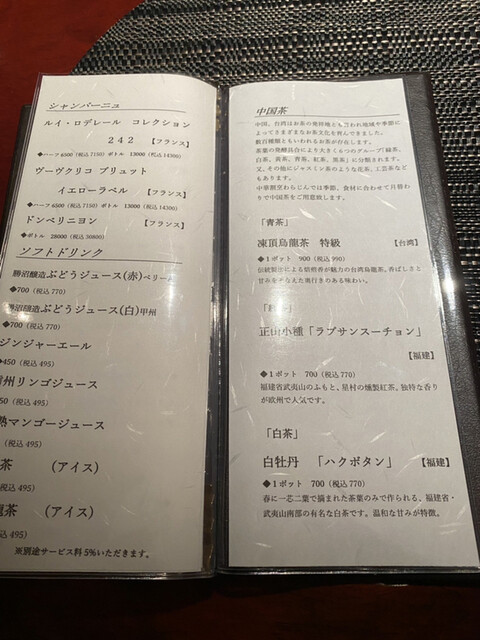 シャンパーニュ
ルイ・ロデレール コレクション
242 【フランス】
◆ハーフ6000(税込7150) ボトル 13000(税込14300)
ヴーヴクリコ ブリュット
イエローラベル 【フランス】
◆ハーフ6500(税込7150) ボトル 13000(税込14300)
ドンペリニヨン 【フランス】
◆ボトル 28000(税込30800)
ソフトドリンク
勝沼醸造ぶどうジュース(赤)ベリーA
◆700(税込770)
勝沼醸造ぶどうジュース(白)甲州
◆700(税込770)
ジンジャーエール
◆450(税込495)
州リンゴジュース
(税込495)
熟マンゴージュース
(税込495)
茶 (アイス)
税込495)
茶 (アイス)
495)
※別途サービス料5%いただきます。
中国茶
中国、台湾はお茶の発祥地とも言われ地域や季節に
よってさまざまなお茶文化を育んできました。
数百種類ともいわれるお茶が存在します。
茶葉の発酵具合により大きく6つのグループ(緑茶、
白茶、黄茶、青茶、紅茶、黒茶)に分類されます。
又、その他にジャスミン茶のような花茶、工芸茶など
もあります。
中華割烹わらじんでは季節、食材に合わせて月替わ
りで中国茶をご用意致します。
「青茶」
凍頂烏龍茶 特級 【台湾】
◆1ポット 900(税込990)
伝統製法による焙煎香が魅力の台湾烏龍茶。香ばしさと
甘みを予んだ奥行きのある味わい。
「紅茶」
正山小種「ラプサンスーチョン」
【福建】
◆1ポット 700(税込770)
福建省武夷山のふもと、星村の燻製紅茶。独特な香り
が欧州で人気です。
「白茶」
白牡丹 「ハクボタン」 【福建】
◆1ポット 700(税込770)
春に一芯二葉で摘まれた茶葉のみで作られる、福建省・
武夷山南部の有名な白茶です。温和な甘みが特徴。